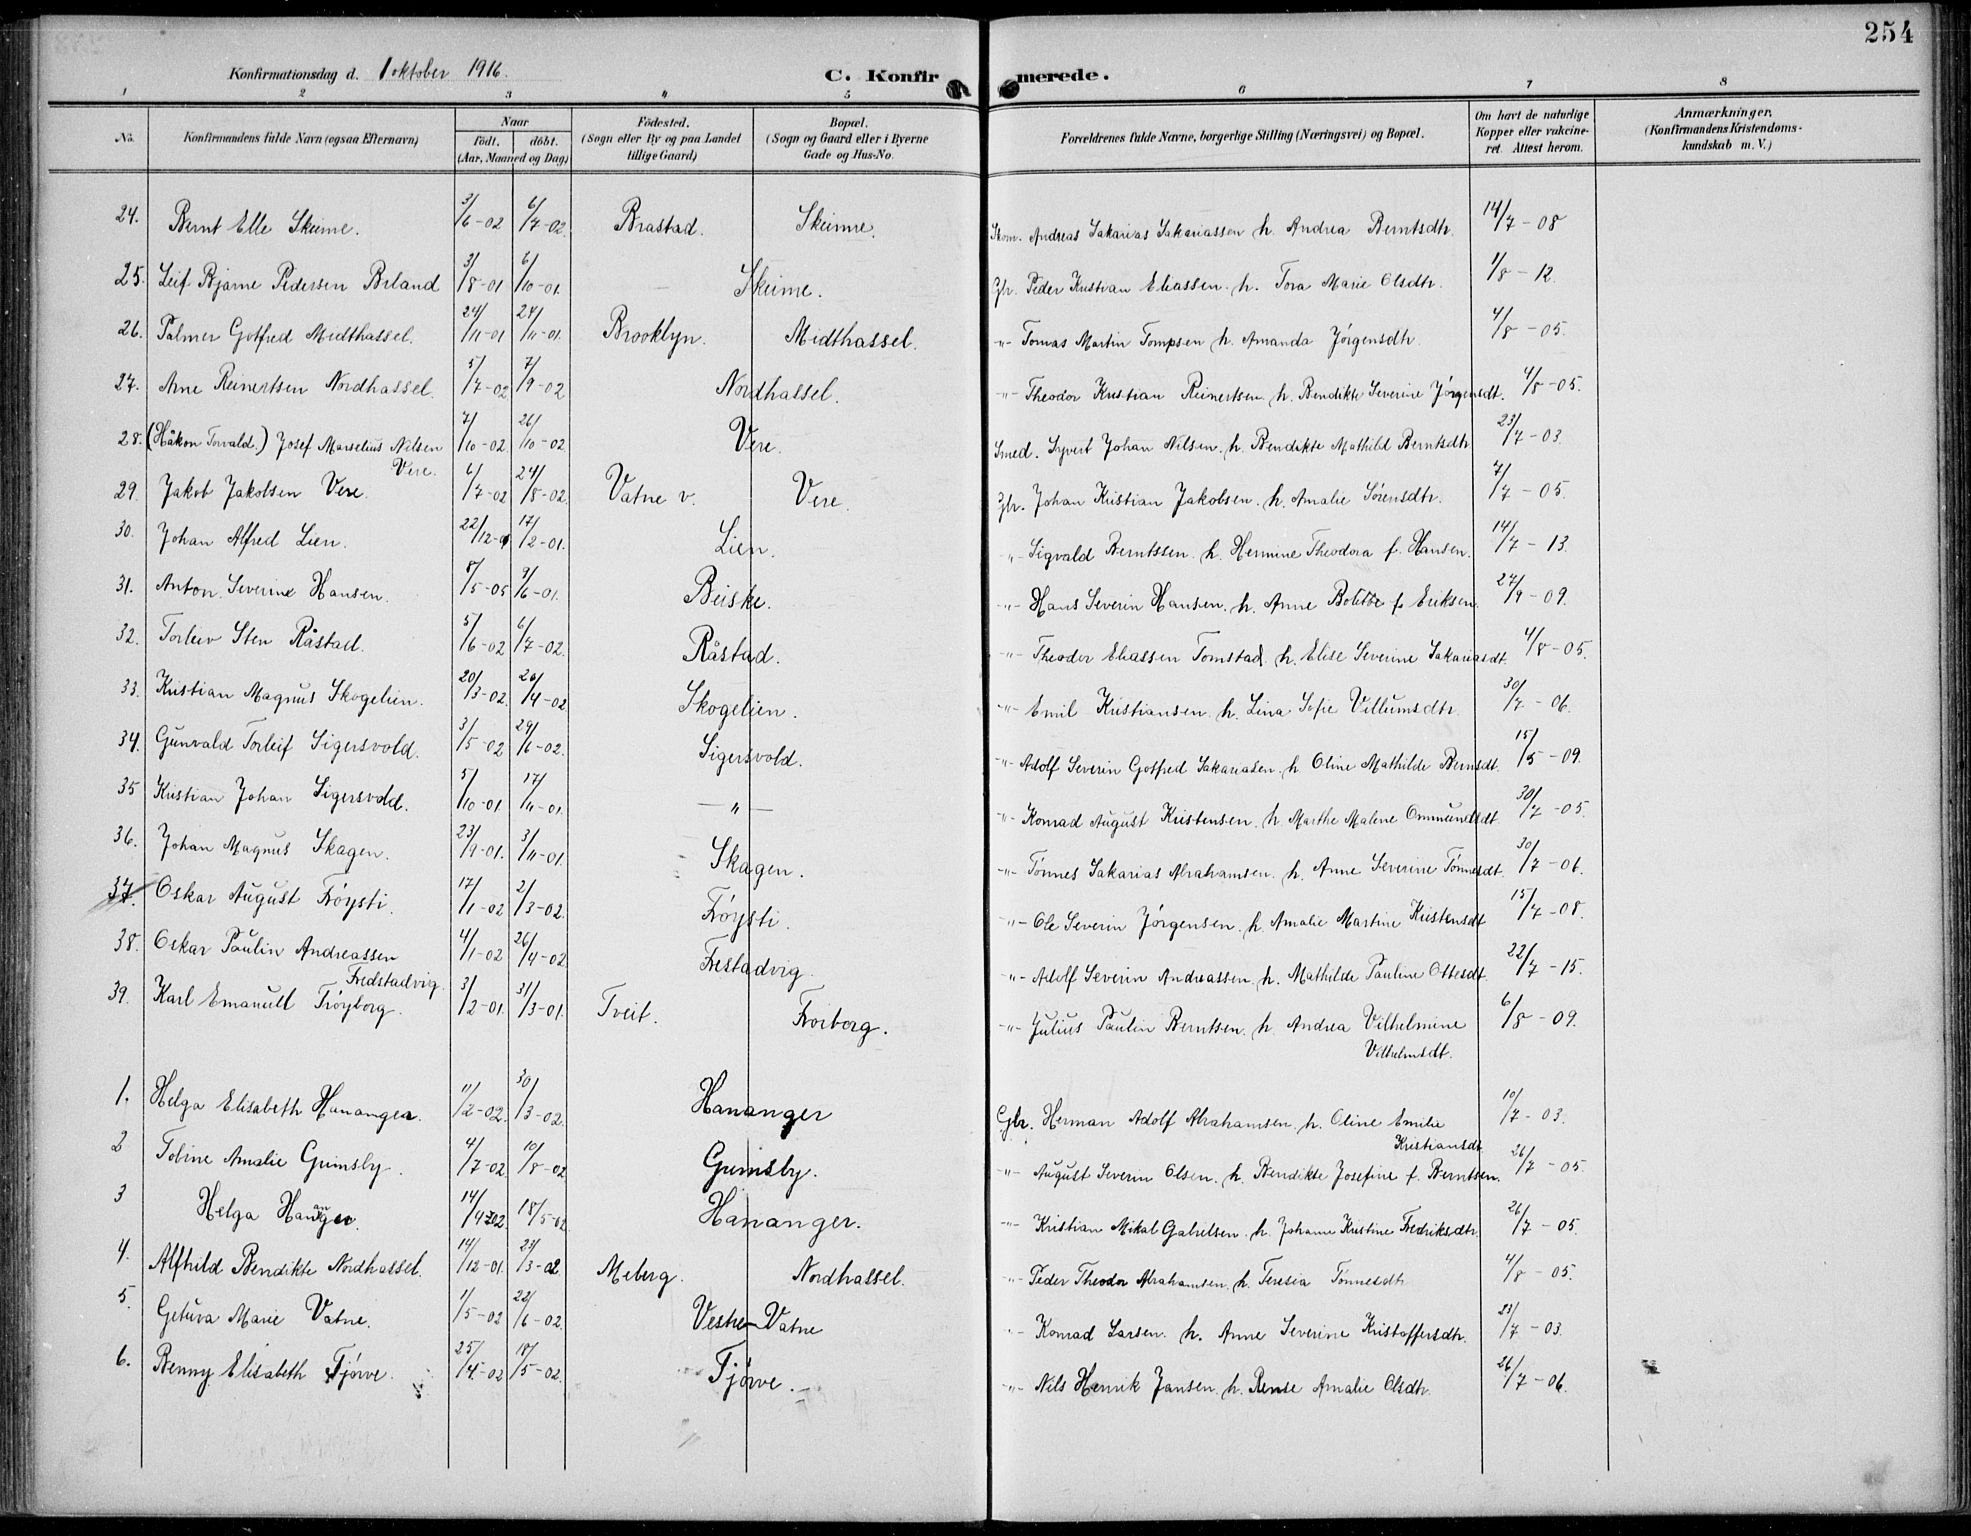 254
Konfirmationsdag d. 1 oktober 1916.
C. Konfirmerede.
1 2 3 4 5 6 7 8
No. Konfirmandens fulde Navn (ogsaa Efternavn) Naar födt. döbt. (Aar, Maaned og Dag) Födested. (Sogn eller By og paa Landet tillige Gaard) Bopæl. (Sogn og Gaard eller i Byerne Gade og Hus-No. Forældrenes fulde Navne, borgerlige Stilling (Næringsvei) og Bopæl. Om havt de naturlige Kopper eller vakcineret. Attest herom. Anmærkninger. (Konfirmandens Kristendomskundskab m. V.)
24. Bernt Elle Skeime. 3/6-02 6/7-02. Brastad. Skeime. Skom. Andreas Sakarias Sakariassen h. Andrea Berntsdtr. 14/7-08
25. Leif Bjarne Pedersen Briland 3/8-01 6/10-01. Skeime. Gbr. Peder Kristian Eliassen. h. Tora Marie Olsdtr. 1/8-12.
26. Palmer Gotfred Midthassel. 24/11-01 24/11-01. Brooklyn. Midthassel. -"- Tomas Martin Tompsen h. Amanda Jörgensdtr. 4/8-05.
27. Arne Reinertsen Nordhassel. 5/7-02 7/9-02 Nordhassel. -"- Theodor Kristian Reinertsen. h. Bendikte Severine Jörgensdt. 4/8-05.
28. (Håkon Torvald.) Josef Marselius Nilsen Vere. 7/10-02 26/10-02 Vere. Smed. Syvert Johan Nilsen. h. Bendikte Mathild Berntsdtr 23/7-03.
29. Jakob Jakobsen Vere. 6/7-02 24/8-02. Vatne v. Vere. Gbr. Johan Kristian Jakobsen. h. Amalie Sörensdtr. 7/7-05.
30. Johan Alfred Lien. 22/12-01 17/2-01. Lien. -"- Sigvald Berntssen. h. Hermine Theodora f. Hansen. 14/7-13.
31. Anton Severine Hansen. 8/5-05 9/6-01. Beiske. -"- Hans Severin Hansen. h. Anne Bolette f. Eriksen. 27/9-09.
32. Torleiv Sten Råstad. 5/6-02 6/7-02. Råstad. -"- Theodor Eliassen Tomstad. h. Elise Severine Sakariasdt. 4/8-05.
33. Kristian Magnus Skogelien. 20/3-02. 26/4-02 Skogelien. -"- Emil Kristiansen. h. Lina Sofie Villumsdtr. 30/7-06.
34. Gunvald Torleif Sigersvold. 3/5-02 29/6-02. Sigersvold. -"- Adolf Severin Gotfred Sakariasen. h. Oline Mathilde Berntsdt. 15/5-09.
35 Kristian Johan Sigersvold. 5/10-01. 17/11-01. -"- -"- Konrad August Kristensen. h. Marthe Malene Ommundsdt. 30/7-05.
36. Johan Magnus Skagen. 23/9-01. 3/11-01. Skagen. -"- Tönnes Sakarias Abrahamsen. h. Anne Severine Tönnesdt. 30/7-06.
37. Oskar August Fröysti. 17/1-02 2/3-02. Fröysti. -"- Ole Severin Jörgensen. h. Amalie Martine Kristensdt 15/7-08.
38. Oskar Paulin Andreassen Fredstadvig. 4/1-02 26/4-02. Frestadvig. -"- Adolf Severin Andreassen. h. Mathilde Pauline Ottesdt. 22/7-15.
39. Karl Emanuell Fröyborg. 3/2-01. 31/3-01. Tveit. Froiborg. -"- Julius Paulin Berntsen. h. Andrea Vilhelmine Vilhelmsdt. 6/8-09.
1. Helga Elisabeth Hananger. 11/2-02. 30/3-02. Hananger Gbr. Herman Adolf Abrahamsen. h. Oline Emilie Kristiansdt. 10/7-03.
2 Tobine Amalie Grimsby. 4/7-02. 10/8-02 Grimsby. -"- August Severin Olsen. h. Bendikte Josefine f. Berntsen. 26/7-05.
3 Helga Hananger. 14/4-02. 18/5-02 Hananger. -"- Kristian Mikal Gabrielsen. h. Johanne Kristine Fredriksdtr. 26/7-05.
4. Alfhild Bendikte Nordhassel. 14/12-01. 23/3-02. Meberg. Nordhassel. -"- Peder Theodor Abrahamsen. h. Teresia Tönnesdtr 4/8-05.
5. Getura Marie Vatne. 1/5-02 22/6-02. Vestre Vatne -"- Konrad Larsen. h. Anne Severine Kristoffersdtr. 23/7-03.
6. Benny Elisabeth Fjörve. 25/4-02 18/5-02. Fjörve. -"- Nils Henrik Jansen. h. Rense Amalie Olsdtr. 26/7-06.